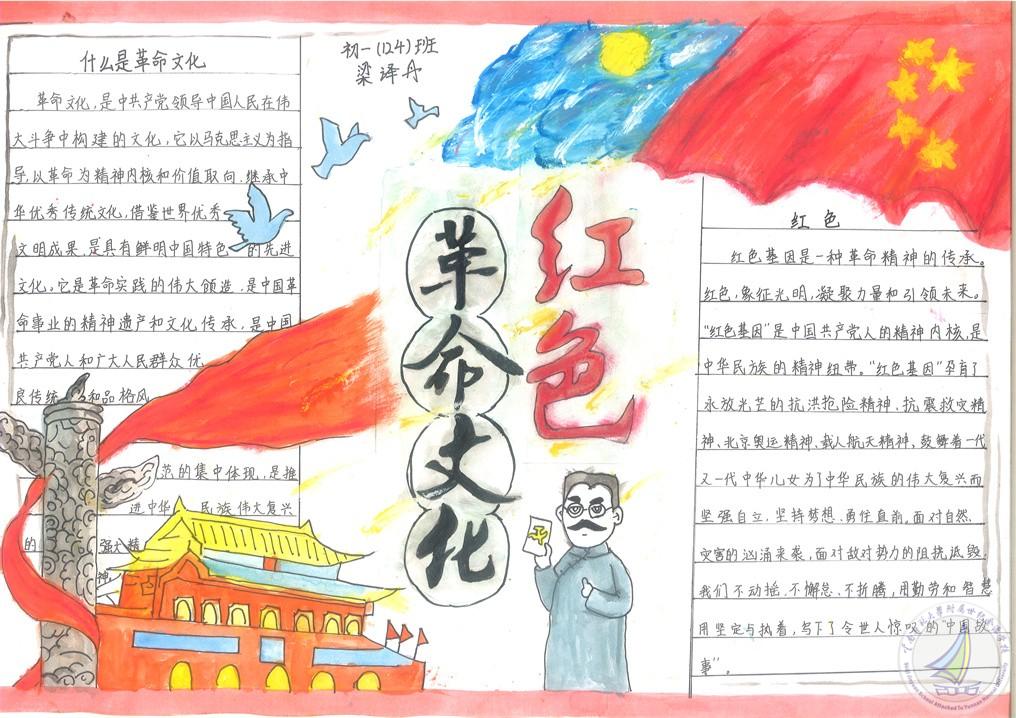 什么是革命文化
革命文化，是中共产党领导中国人民在伟
大斗争中构建的文化，它以马克思主义为指
导，以革命为精神内核和价值取向，继承中
华优秀传统文化，借鉴世界优秀
文明成果，是具有鲜明中国特色 的先进
文化。它是革命实践的伟大颌造，是中国革
命事业的精神遗产和文化传承，是中国
共产党人和广大人民群众优
良传统 和品格风
范的集中体现，是推
进中华 民族伟大复兴
的 强大精
神
初一(124)班
梁泽丹
红色
革命文化
红色
红色基因是一种革命精神的传承。
红色，象征光明，凝聚力量和引领未来。
“红色基因”是中国共产党人的精神内核，是
中华民族的精神纽带。“红色基因”孕育了
永放光芒的抗洪抢险精神、抗震救灾精
神、北京奥运精神、载人航天精神，鼓舞着一代
又一代中华儿女为了中华民族的伟大复兴而
坚强自立，坚持梦想，勇往直前。面对自然
灾害的汹涌来袭，面对敌对势力的阻挠诋毁，
我们不动摇、不懈怠、不折腾，用勤劳和智慧
用坚定与执着，写下了令世人惊叹的“中国故
事”。